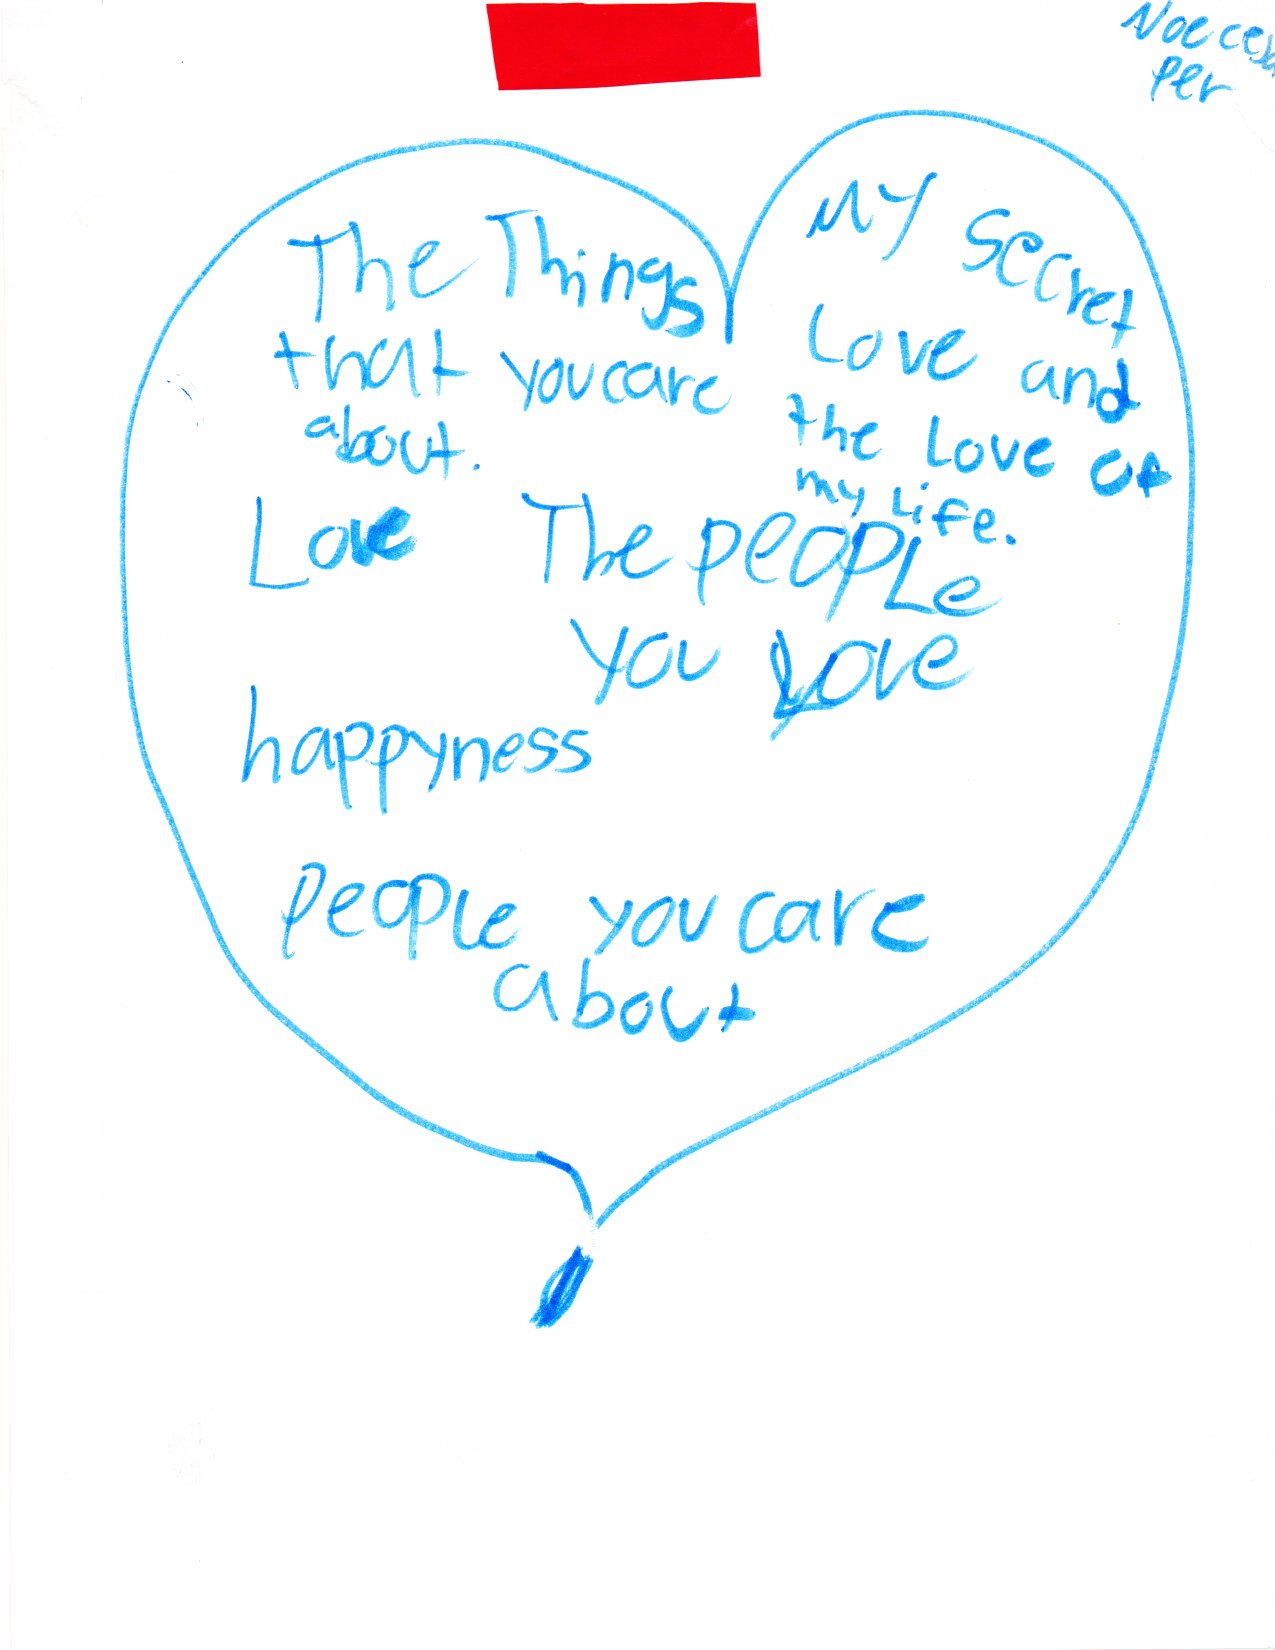 The Things
that you care
about.
My secret
Love and
the Love of
my Life.
Love
The people
you Love
happyness
people you care
about
Noe
per